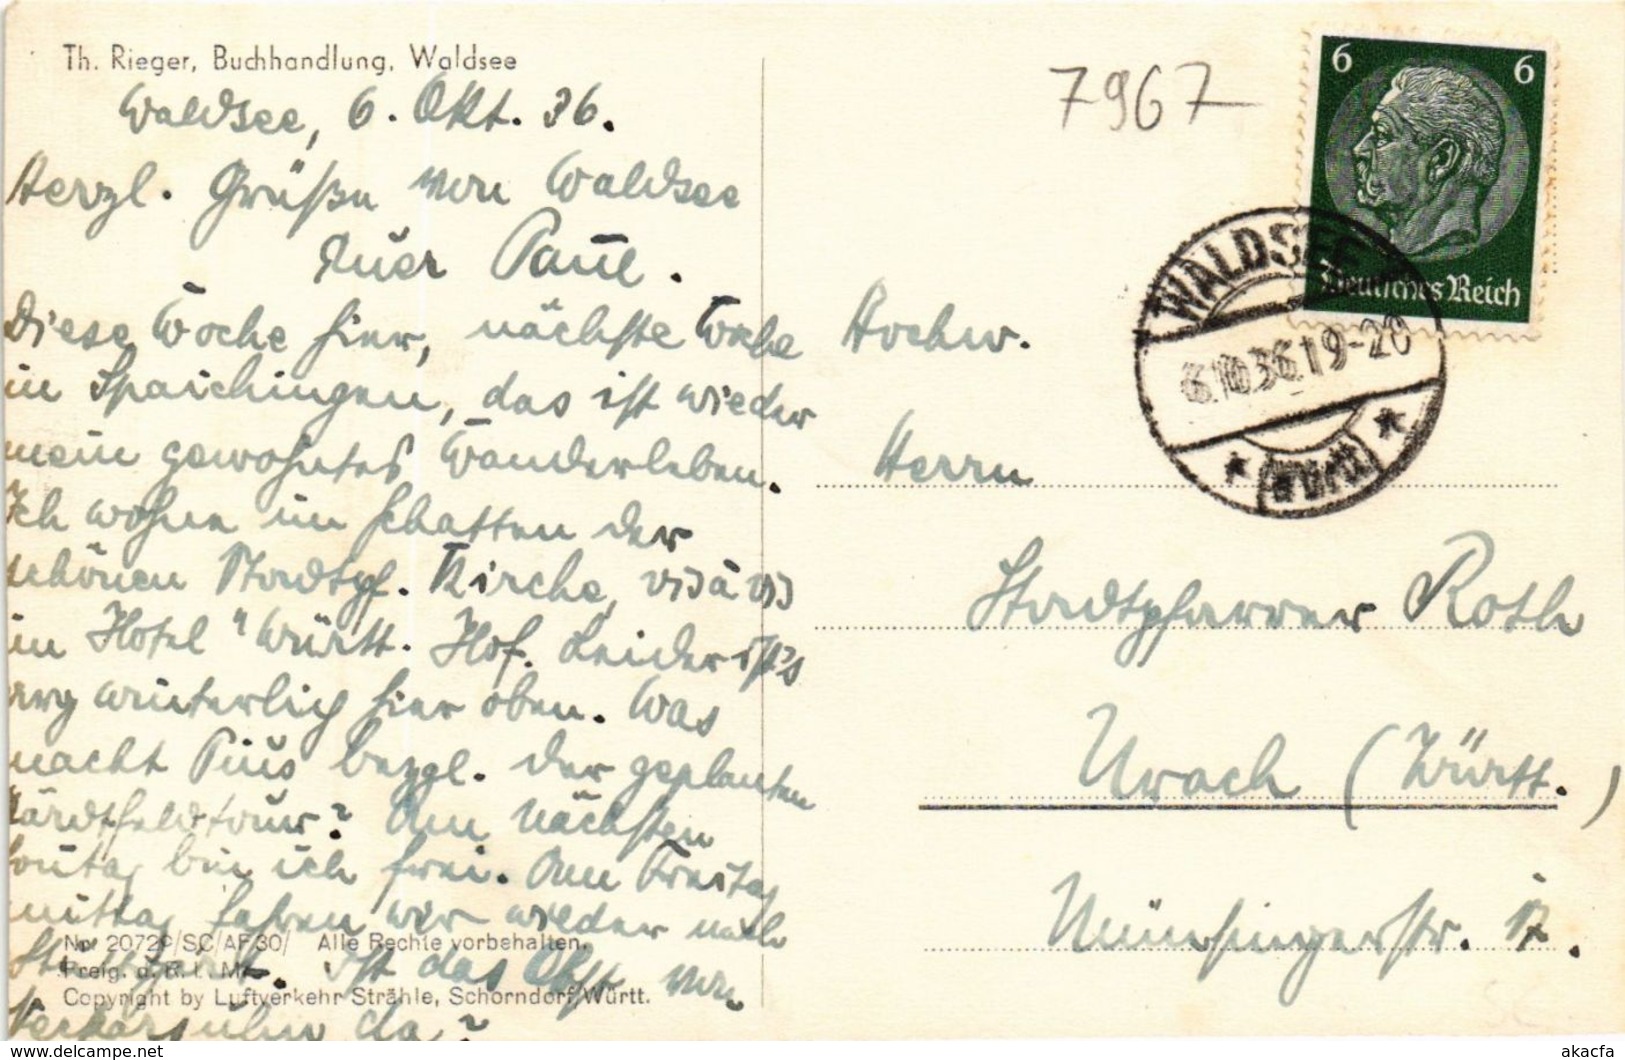 Th. Rieger, Buchhandlung, Waldsee
7967
6 6
Deutsches Reich
WALDSEE
6.10.36.19-20
(Württ)
Waldsee, 6. Okt. 36.
Herzl. Grüße von Waldsee
Euer Paul.
Diese Woche hier, nächste Woche
in Spaichingen, das ist wieder
mein gewohntes Wanderleben.
Ich wohne im Schatten der
schönen Stadtpf. Kirche, vis à vis
im Hotel "Württ. Hof. Leider ist's
arg winterlich hier oben. Was
macht Pius bezgl. der geplanten
Härdtfeldtour? Am nächsten
Sontag bin ich frei. Am Freitag
mittag fahren wir wieder nach
Stuttgart. Ist das Obst von
Neckarsulm da?
No 2072c/SC/AF30/ Alle Rechte vorbehalten.
Freig. d. R. L. M.
Copyright by Luftverkehr Strähle, Schorndorf/Württ.
Hochw.
Herrn
Stadtpfarrer Roth
Urach (Württ.)
Münsingerstr. 17.
akacfa